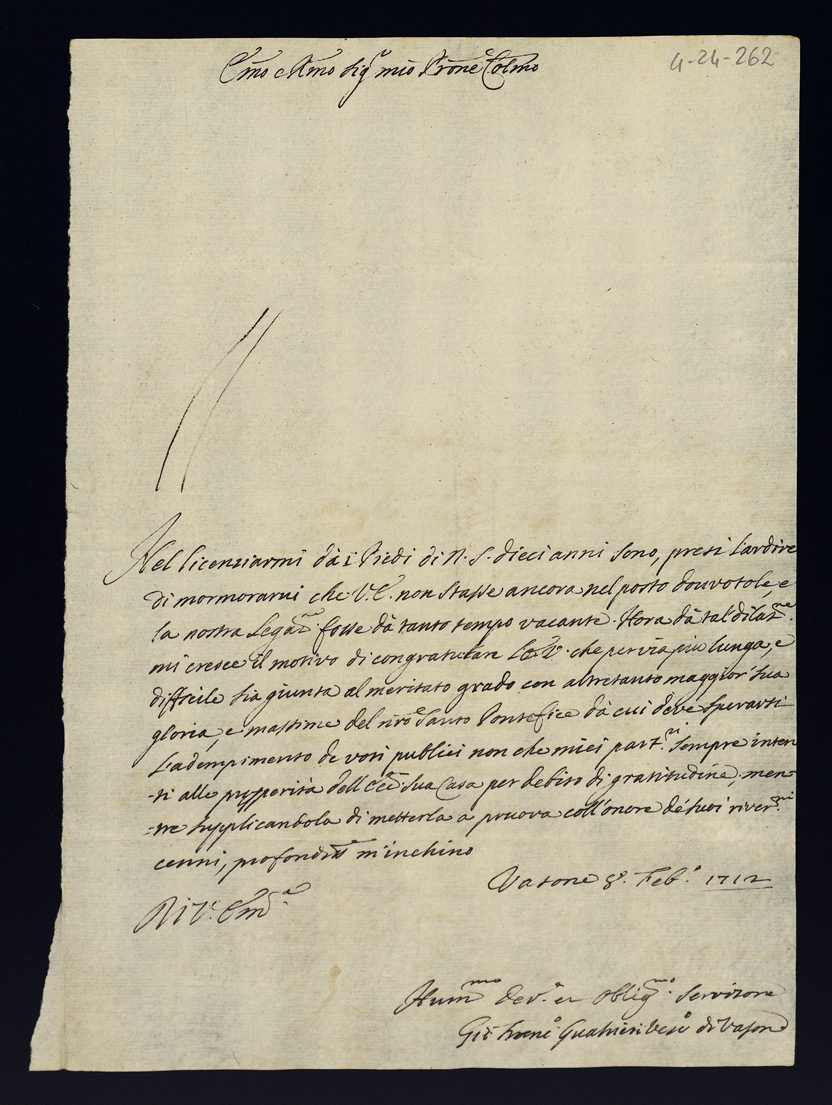 Emo e Rmo Sigr mio Prone Colmo
4-24-262
Nel licenziarmi dà i Piedi di N. S. dieci anni sono, presi l'ardire
di mormorarni che V. E. non stasse ancora nel posto douutole, e
la nostra Legaz.ne fosse dà tanto tempo vacante. Hora dà tal dilaz.ne
mi cresce il motivo di congratular che per via più lunga, e
difficile sia giunta al meritato grado con altretanto maggior' sua
gloria, e massime del Santo Pontefice dà cui deve sperarsi
l'adempimento de voti publici non che miei part.ri sempre inten
-ti alle prosperità dell'Ecc.ma Sua Casa per debito di gratitudine, men-
-tre supplicandola di metterla a pruova coll'onore de' suoi river.mi
cenni, profondam.te m'inchino
Vasone 8. Feb.o 1712
Di V. Em.a
Hum.mo dev.o et oblig.mo servitore
Gualtieri Vesc.o di Vasone